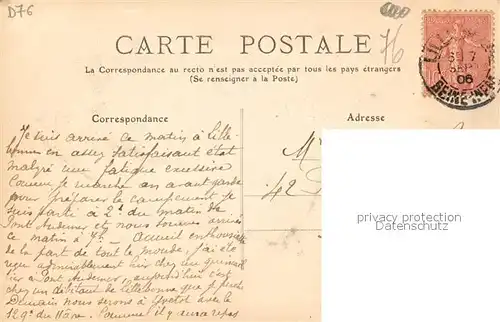 D76
76
CARTE POSTALE
La Correspondance au recto n'est pas acceptée par tous les pays étrangers
(Se renseigner à la Poste)
LILLEBONNE
7
SEPT
06
SEINE-INFRE
Correspondance
Adresse
Je suis arrivé ce matin à Lille-
bonne en assez satisfaisant état
malgré une fatigue excessive
Comme je marche en avant-garde
pour préparer le campement je
suis parti à 2h du matin de
Pont Audemer et nous sommes arrivés
ce matin à 7h. Accueil enthousiaste
de la part de tout le monde. J'ai été
reçu admirablement hier chez un
à Pont Audemer, aujourd'hui c'est
chez un débitant de Lillebonne que je
Demain nous serons à Yvetot avec le
129e du Hâvre. Comme il y aura repos
M
42
privacy protection
Datenschutz